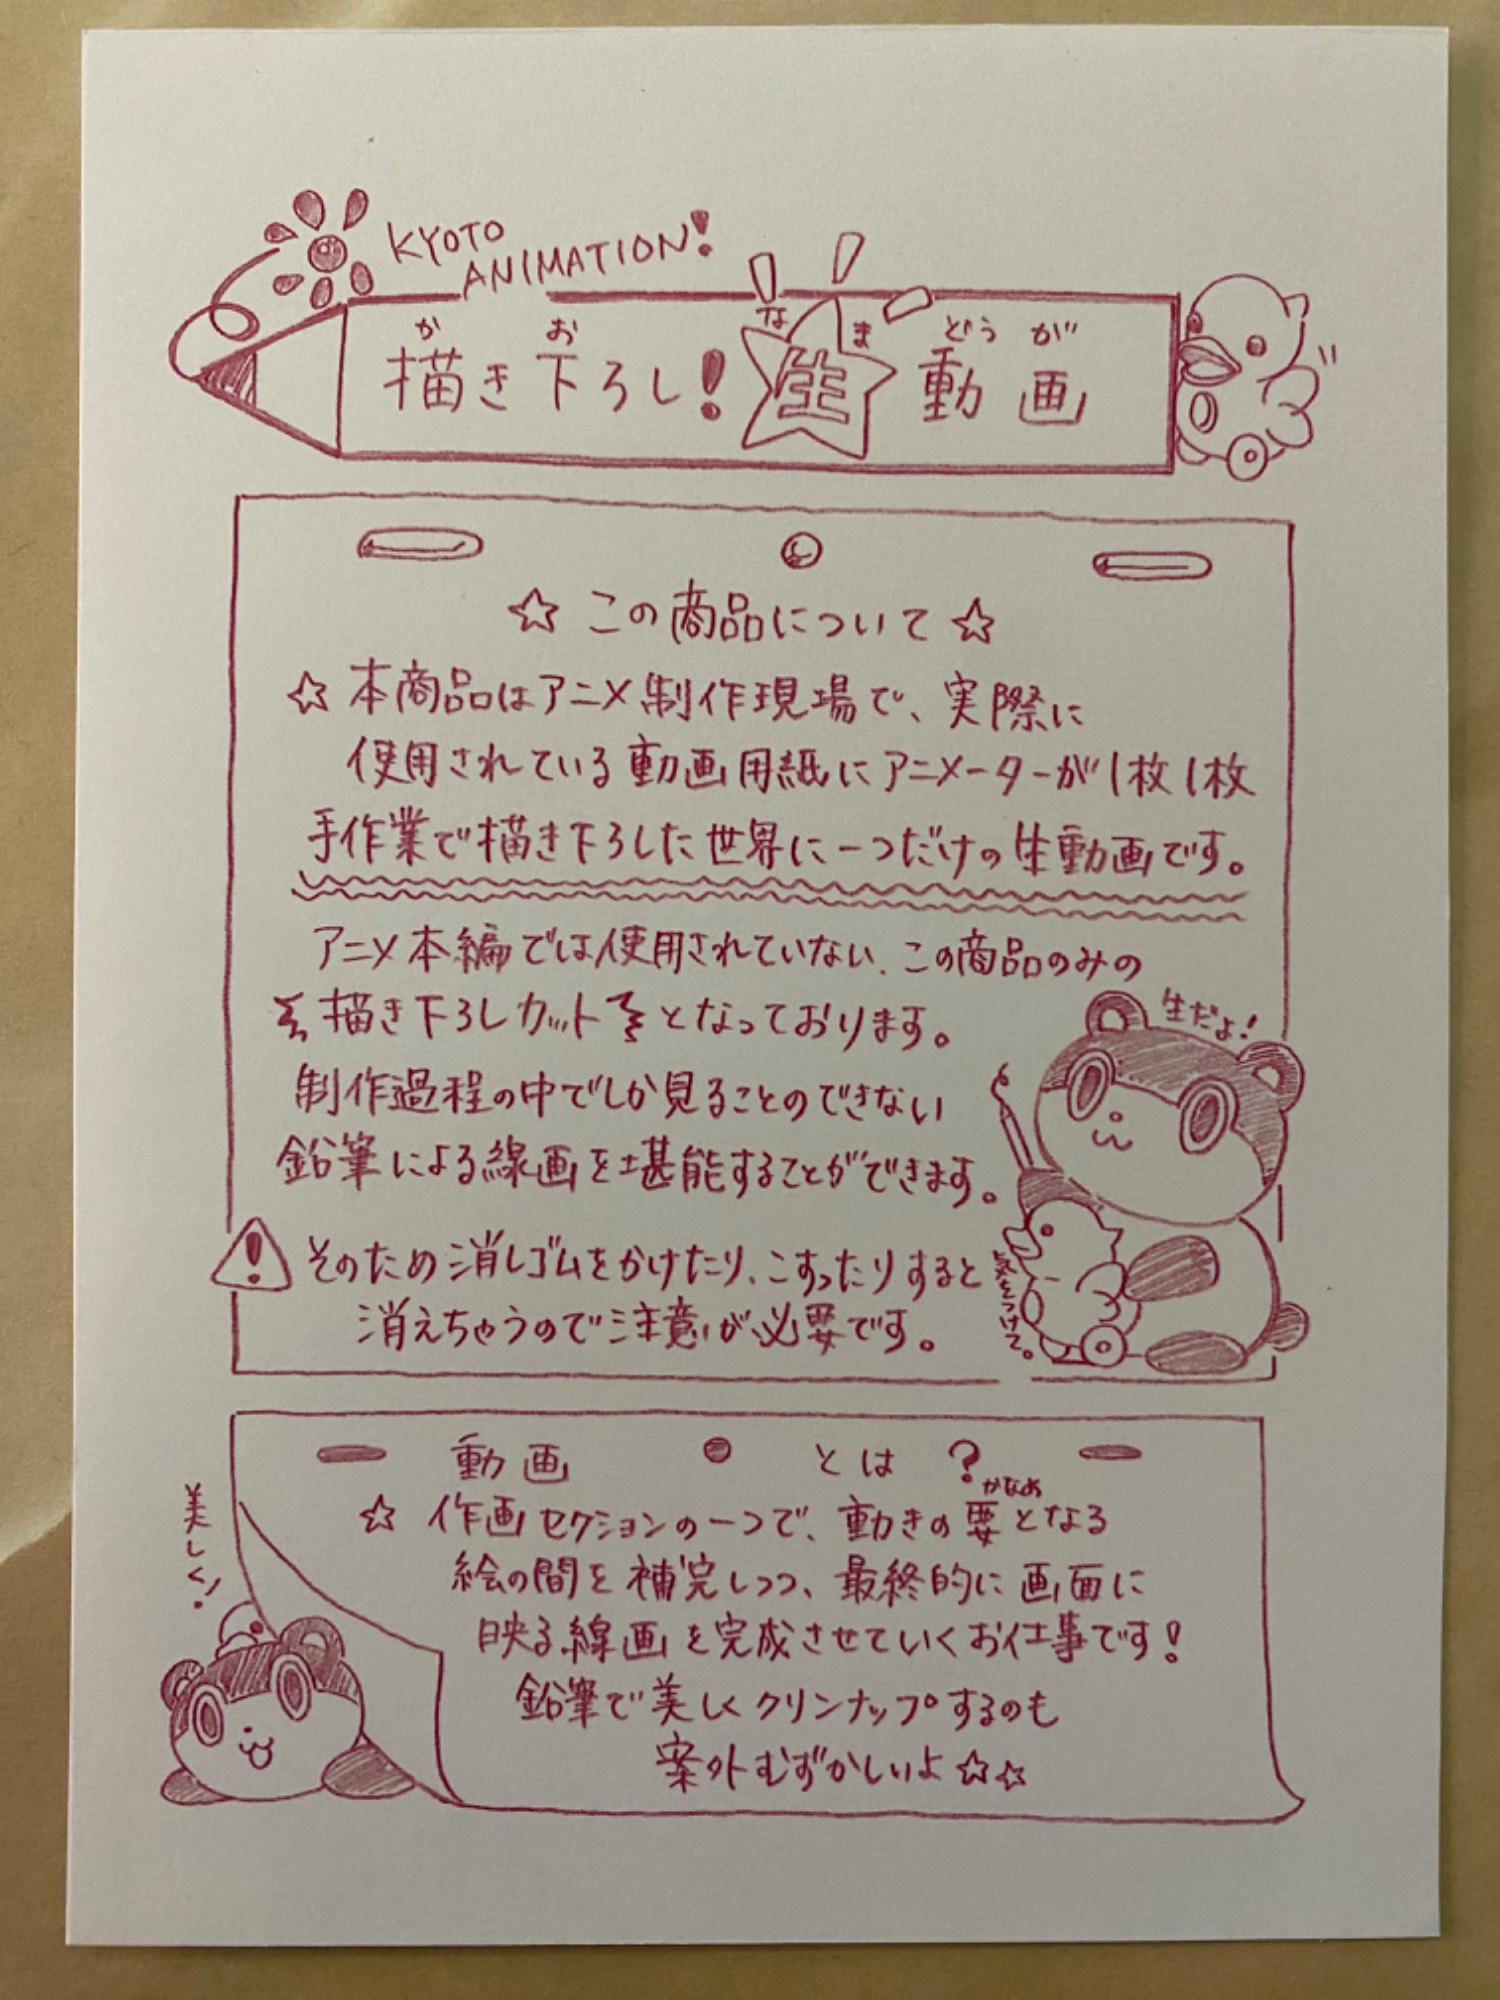 KYOTO
ANIMATION!
描き下ろし!生動画
か お な ま どう が
☆この商品について☆
☆本商品はアニメ制作現場で、実際に
使用されている動画用紙にアニメーターが1枚1枚
手作業で描き下ろした世界に一つだけの生動画です。
アニメ本編では使用されていない、この商品のみの
描き下ろしカットとなっております。
生だよ!
制作過程の中でしか見ることのできない
鉛筆による線画を堪能することができます。
そのため消しゴムをかけたり、こすったりすると
消えちゃうので注意が必要です。
気をつけて。
動画とは?
☆作画セクションの一つで、動きの要となる
かなめ
絵の間を補完しつつ、最終的に画面に
映る線画を完成させていくお仕事です!
鉛筆で美しくクリンナップするのも
案外むずかしいよ☆☆
美しく!